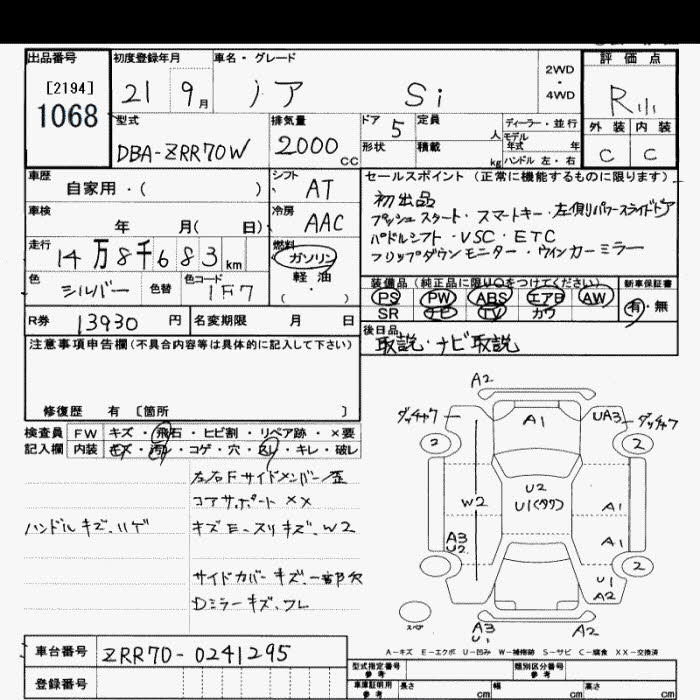 出品番号
[2194]
1068
初度登録年月
21 9月
車名・グレード
ノア Si
2WD
・
4WD
評価点
外装 内装
C C
型式
DBA-ZRR70W
排気量
2000 CC
ドア 5
形状
定員 人
積載 kg
ディーラー・並行
モデル
年式 年
ハンドル 左・右
車歴
自家用・( )
シフト
AT
車検
年 月( 日)
冷房
AAC
走行
14万8千683km
燃料
ガソリン
軽・油
( )
色
シルバー
色替
色コード
1F7
セールスポイント (正常に機能するものに限ります)
初出品
プッシュスタート・スマートキー・左側パワースライドドア
パドルシフト・VSC・ETC
フリップダウンモニター・ウインカーミラー
装備品(純正品に限り○をつけてください)
PS PW ABS エアB AW
SR ナビ TV カワ
新車保証書
有・無
R券 13930円
名変期限 月 日
後日品
取説・ナビ取説
注意事項申告欄(不具合内容等は具体的に記入して下さい)
修復歴 有 [箇所 ]
検査員
記入欄
FW キズ・飛石・ヒビ割・リペア跡・×要
内装 キズ・汚レ・コゲ・穴・スレ・キレ・破レ
左右Fサイドメンバー歪
コアサポート ××
ハンドルキズ、ハゲ
キズ E-スリキズ、W2
サイドカバーキズ、一部欠
Dミラーキズ、ワレ
A2
ダッチャク
A1
UA3
ダッチャク
2
2
W2
U2
U1(タワ)
A1
A3
U2
A1
2
U1
A2
スペア
A3
U1
A2
A-キズ E-エクボ U-凹み W-補修跡 S-サビ C-腐食 XX-交換済
車台番号 ZRR70-0241295
登録番号
型式指定番号
参考
類別区分番号
参考
車庫証明用
参考
長さ cm
幅 cm
高さ cm